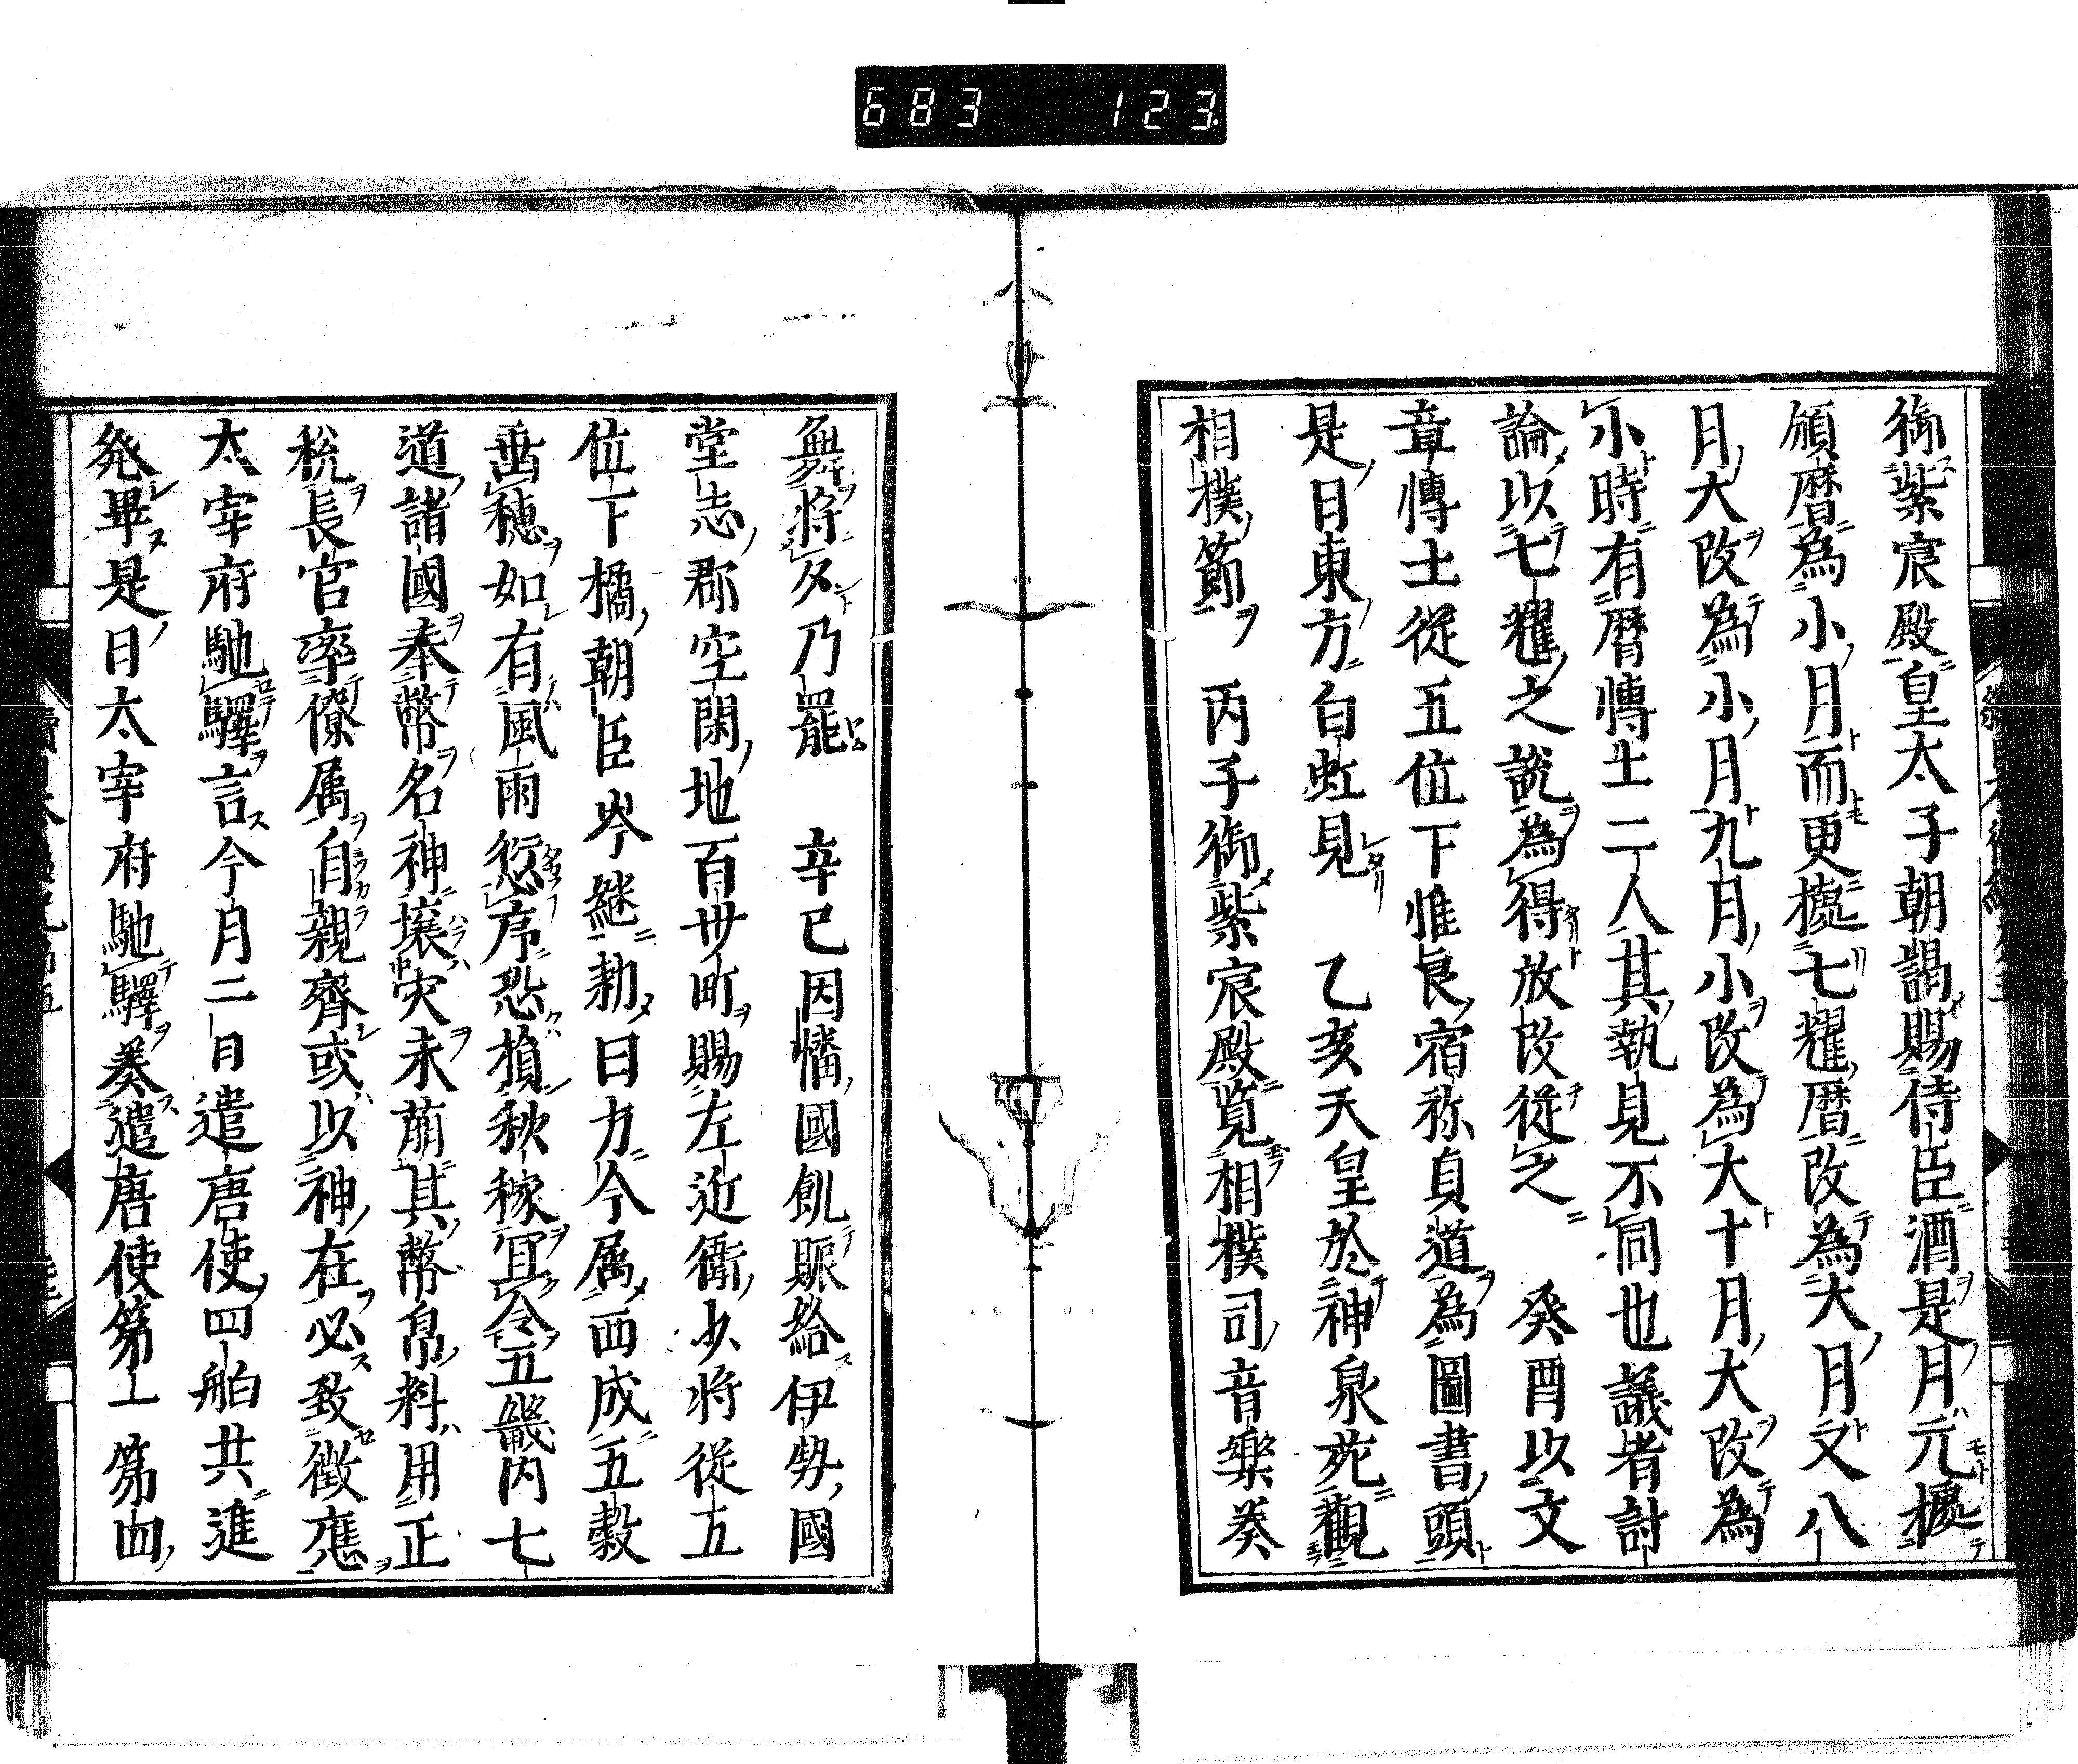 683 123
御紫宸殿皇太子朝謁賜侍臣酒是月元據
頒暦為小月而更據七耀暦改為大月又八
月大改為小月九月小改為大十月大改為
小時有暦博士二人其執見不同也議者討
論以七耀之説為得放改從之　癸酉以文
章博士從五位下惟良宿祢貞道為圖書頭
是日東方白虹見　乙亥天皇於神泉苑觀
相撲節　丙子御紫宸殿覧相撲司音樂奏
舞將夕乃罷　辛巳因幡國飢賑給伊勢國
堂志郡空閑地百卅町賜左近衛少将從五
位下橘朝臣岑継勅曰方今属西成五穀
垂穂如有風雨愆序恐損秋稼冝令五畿内七
道諸國奉幣名神攘灾未萠其幣帛料用正
税長官率僚属自親齊或以神在必致徴應
太宰府馳驛言今月二日遣唐使四舶共進
発畢是日太宰府馳驛奏遣唐使第一第四